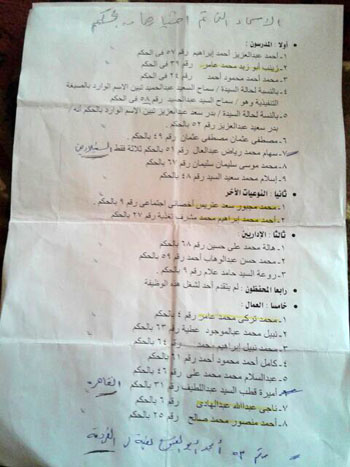 الاسماء التى تم اختيارها بحكم
أولا : المدرسون :
١- أحمد عبدالعزيز أحمد إبراهيم رقم ٥٧ فى الحكم
٢- زينب أبو زيد محمد عامر رقم ٣٩ فى الحكم
٣- محمد أحمد محمود أحمد رقم ٢٤ فى الحكم
٤- بالنسبة لحالة السيدة / سماح السعيد عبدالحميد تبين الاسم الوارد بالصيغة
التنفيذية وهو / سماح السيد عبدالحميد رقم ٥٨ فى الحكم
٥- بالنسبة لحالة السيدة / بدر سعيد عبدالعزيز تبين الاسم الوارد بالحكم أنه /
بدر سعيد عبدالعزيز رقم ٥٢ بالحكم
٦- مصطفى عثمان مصطفى عثمان رقم ٤٩ بالحكم
٧- سهام محمد رياض عبدالعال رقم ٥١ بالحكم ثلاثة فقط
٨- محمد موسى سليمان سليمان رقم ٦٧ بالحكم
٩- إسلام محمد سعيد السيد رقم ٤٨ بالحكم
ثانيا : النوعيات الأخر
١- محمد مجبور سعد عتريس أخصائى اجتماعى رقم ٩ بالحكم
٢- أحمد محمد إبراهيم محمد مشرف تغذية رقم ٢٧ بالحكم
ثالثا : الإداريين :
١- هالة محمد على حسين رقم ٦٨ بالحكم
٢- محمد حسن عبدالوهاب أحمد رقم ٥٩ بالحكم
٣- روعة السيد حامد علام رقم ٩ بالحكم
رابعا المحفظون : لم يتقدم أحد لشغل هذه الوظيفة
خامسا : العمال :
١- محمد تركى محمد عامر رقم ٤ بالحكم
٢- نبيل محمد عبدالموجود عطية رقم ٦٣ بالحكم
٣- محمد نبيل إبراهيم محمد رقم ٦٤ بالحكم
٤- كامل أحمد محمود أحمد رقم ٦١ بالحكم
٥- عبدالسلام محمد محمد على رقم ٤٦ بالحكم
٦- أميرة قطب السيد عبداللطيف رقم ٣١ بالحكم القاهره
٧- ناجى عبدالله عبدالهادى رقم ٦ بالحكم
٨- أحمد منصور محمد صالح رقم ٢٥ بالحكم
رقم ٥٣ أحمد